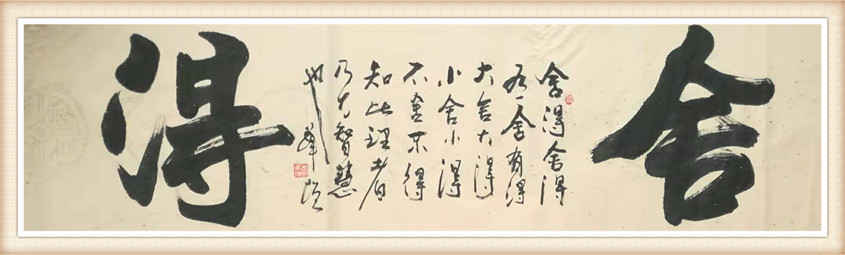 舍
舍得舍得
有舍有得
大舍大得
小舍小得
不舍不得
知此理者
乃大智慧
也
得